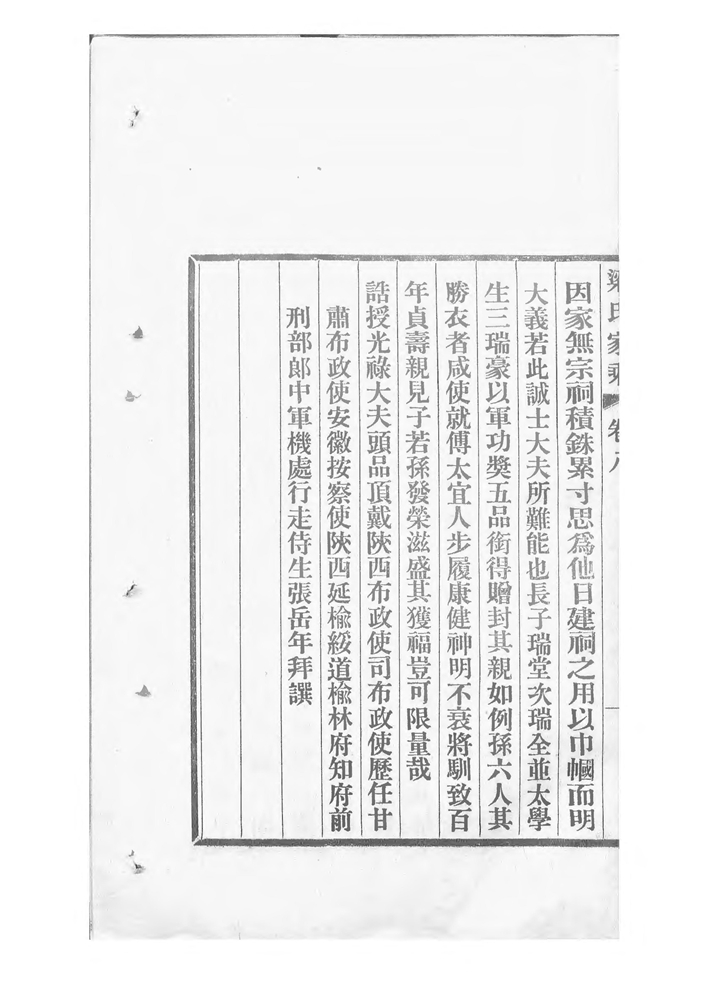 梁氏家乘 卷八
因家無宗祠積銖累寸思爲他日建祠之用以巾幗而明
大義若此誠士大夫所難能也長子瑞堂次瑞全並太學
生三瑞豪以軍功獎五品銜得贈封其親如例孫六人其
勝衣者咸使就傅太宜人步履康健神明不衰將馴致百
年貞壽親見子若孫發榮滋盛其獲福豈可限量哉
誥授光祿大夫頭品頂戴陝西布政使司布政使歷任甘
肅布政使安徽按察使陝西延榆綏道榆林府知府前
刑部郎中軍機處行走侍生張岳年拜譔